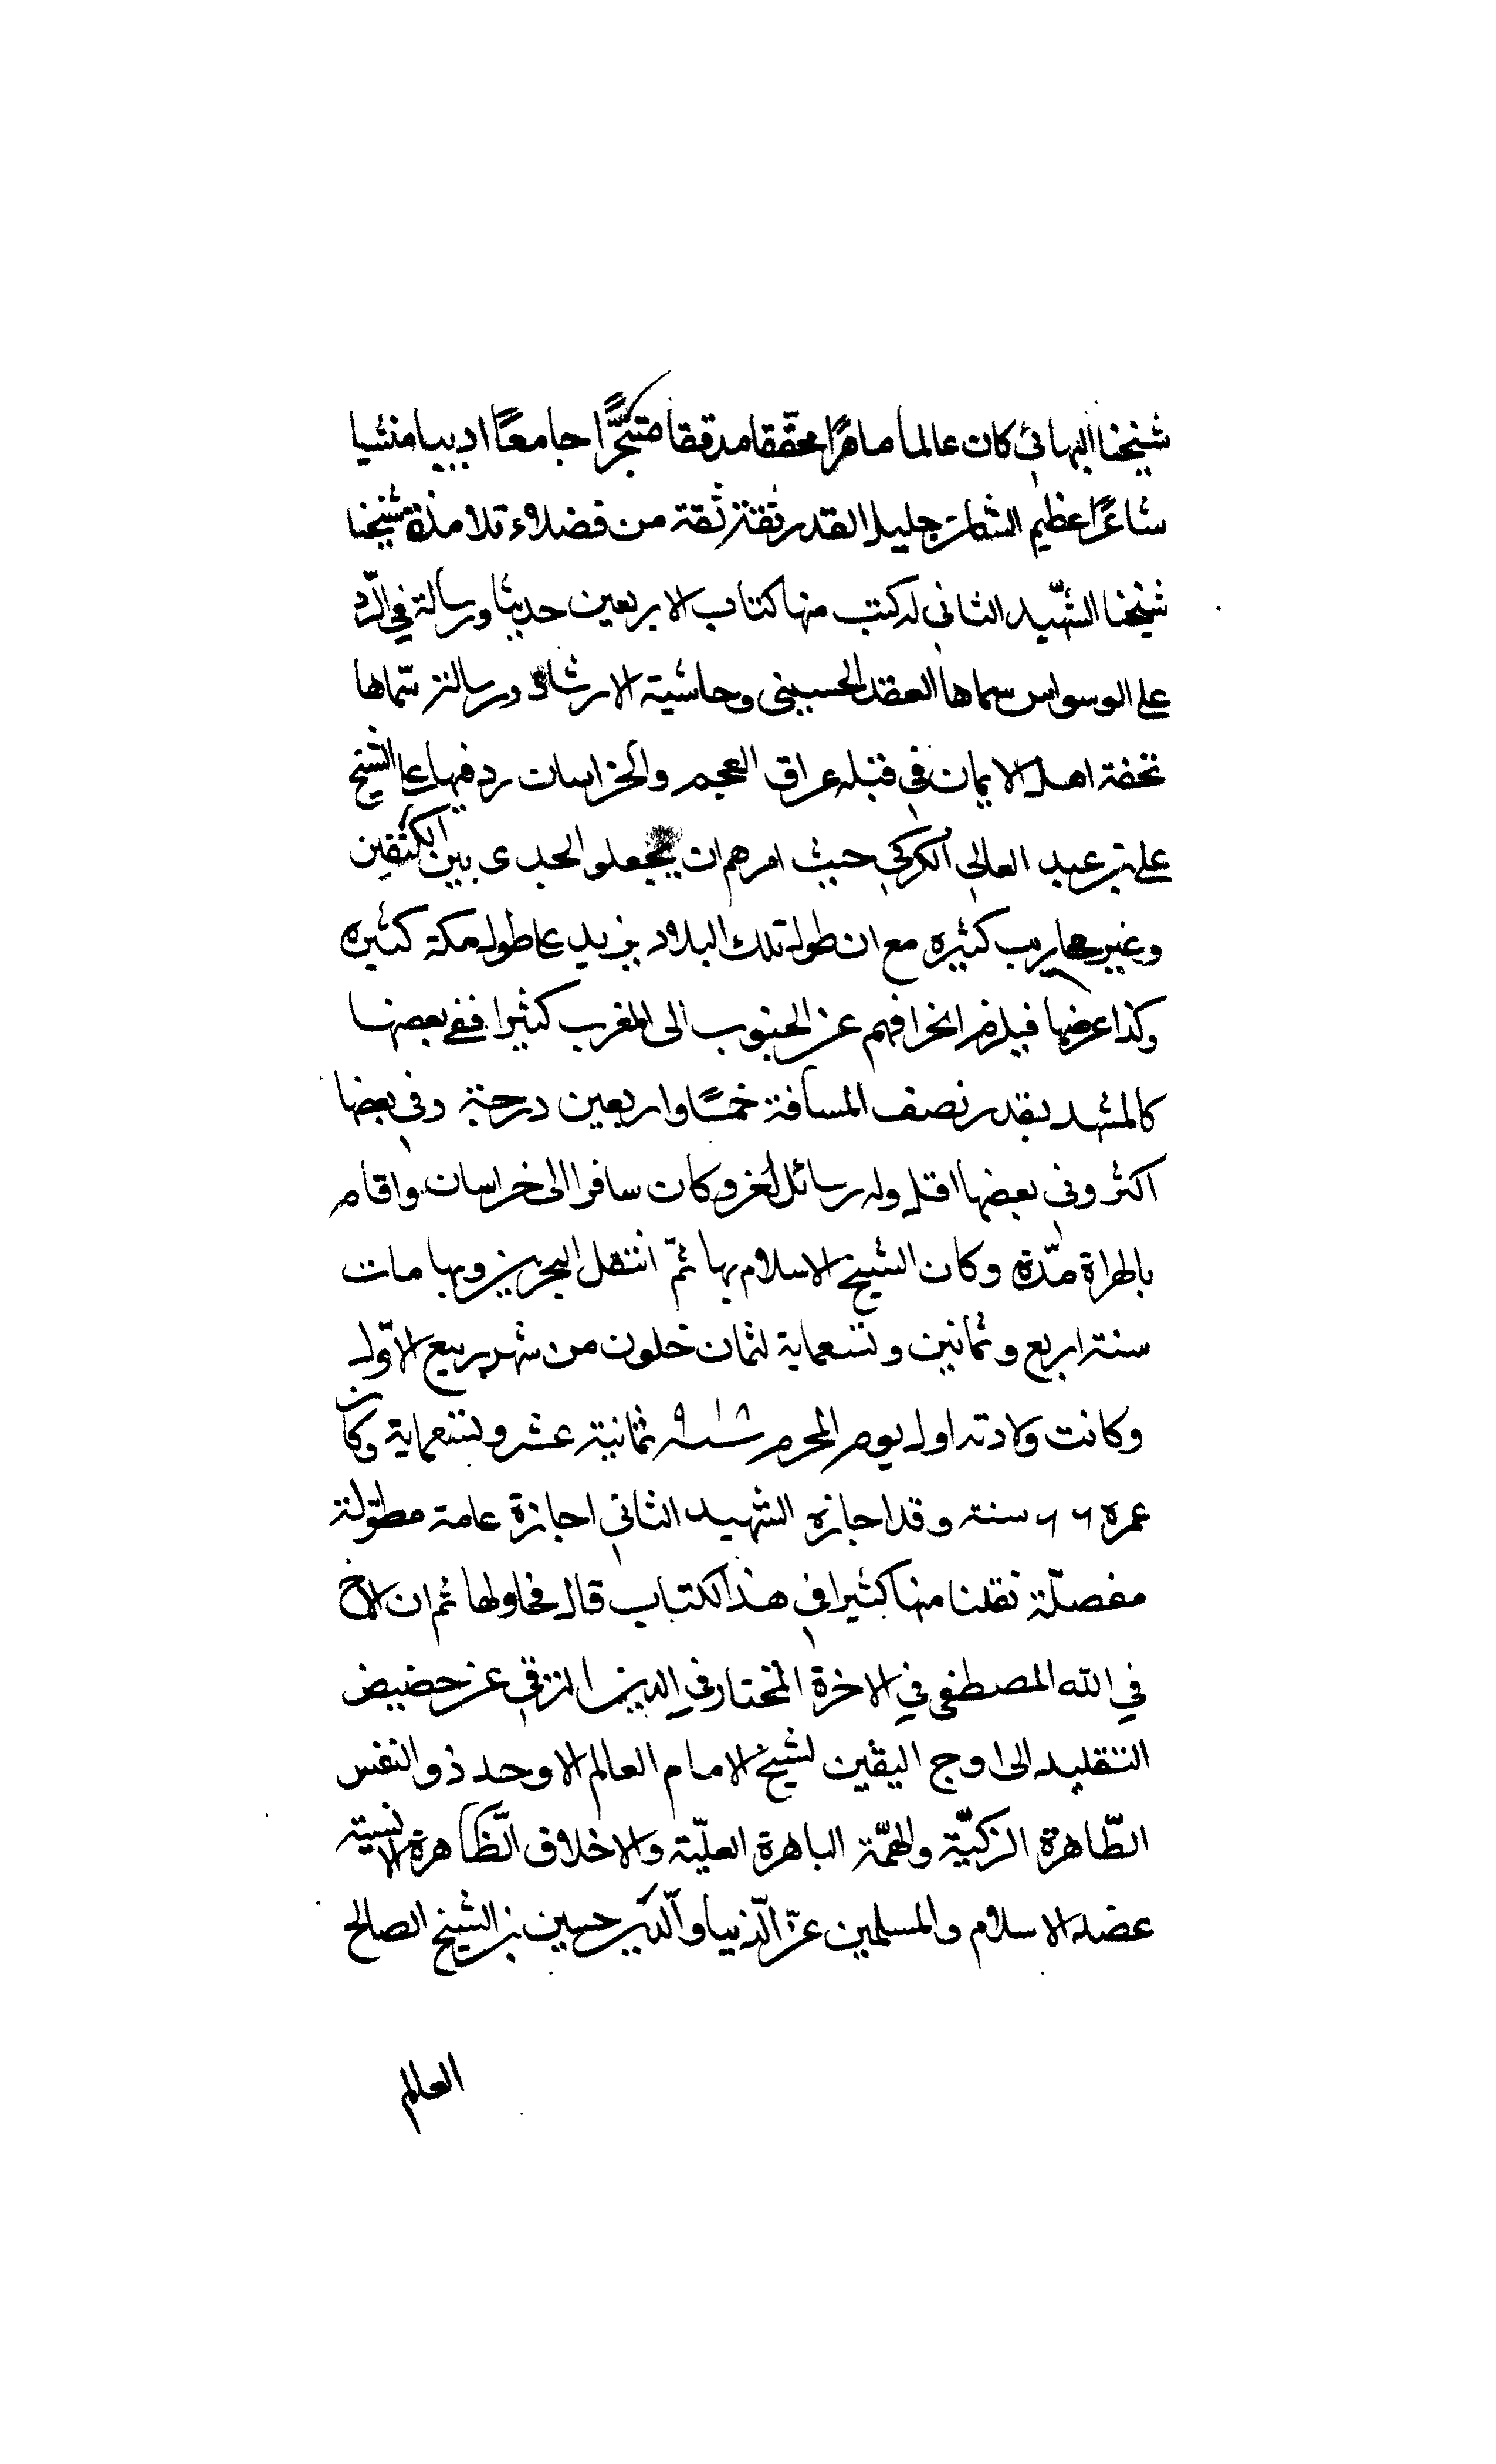 شيخنا البهائي كان عالما ماهرًا محقّقا مدققا متبحّرًا جامعًا اديبا منشيا
شاعرًا عظيم الشان جليل القدر ثقة ثقة من فضلاء تلامذة شيخنا
شيخنا الشّهيد الثاني له كتب منها كتاب الاربعين حديثا ورسالة في الرّد
على الوسواس سماها العقد الحسيني وحاشية الارشاد ورسالة سمّاها
تحفة اهل الايمان في قبله عراق العجم والخراسان رد فيها على الشيخ
على بن عبد العالي الكركي حيث امرهم ان يجعلو الجدى بين الكتفين
وغير محاريب كثيره مع ان طول تلك البلاد يزيد على طول مكة كثيره
وكذا عرضها فيلزم انحرافهم عن الجنوب الى المغرب كثيرا ففي بعضها
كالمشهد بقدر نصف المسافة خمسًا واربعين درجة وفي بعضها
اكثر وفي بعضها اقل وله رسائل لغز وكان سافر الى خراسان واقام
بالهراة مدّة وكان الشيخ الاسلام بها ثمّ انتقل البحرين وبها مات
سنة اربع وثمانين وتسعماية لثمان خلون من شهر ربيع الاوّل
وكانت ولادته اول يوم المحرم سنة ٩١٨ ثمانية عشر وتسعماية وكان
عمره ٦٦ سنة وقد اجازه الشهيد الثاني اجازة عامة مطوّلة
مفصّلة نقلنا منها كثيرا في هذا الكتاب قال في اولها ثم ان الاخ
في الله المصطفى في الاخرة المختار في الدين المترقي عن حضيض
التقليد الى اوج اليقين لشيخ الامام العالم الاوحد ذو النفس
الطّاهرة الزكيّة والهمّة الباهرة العليّة والاخلاق الظّاهرة الانسيّة
عضد الاسلام والمسلمين عزّ الدّنيا والّدين حسين بن الشيخ الصالح
العالم